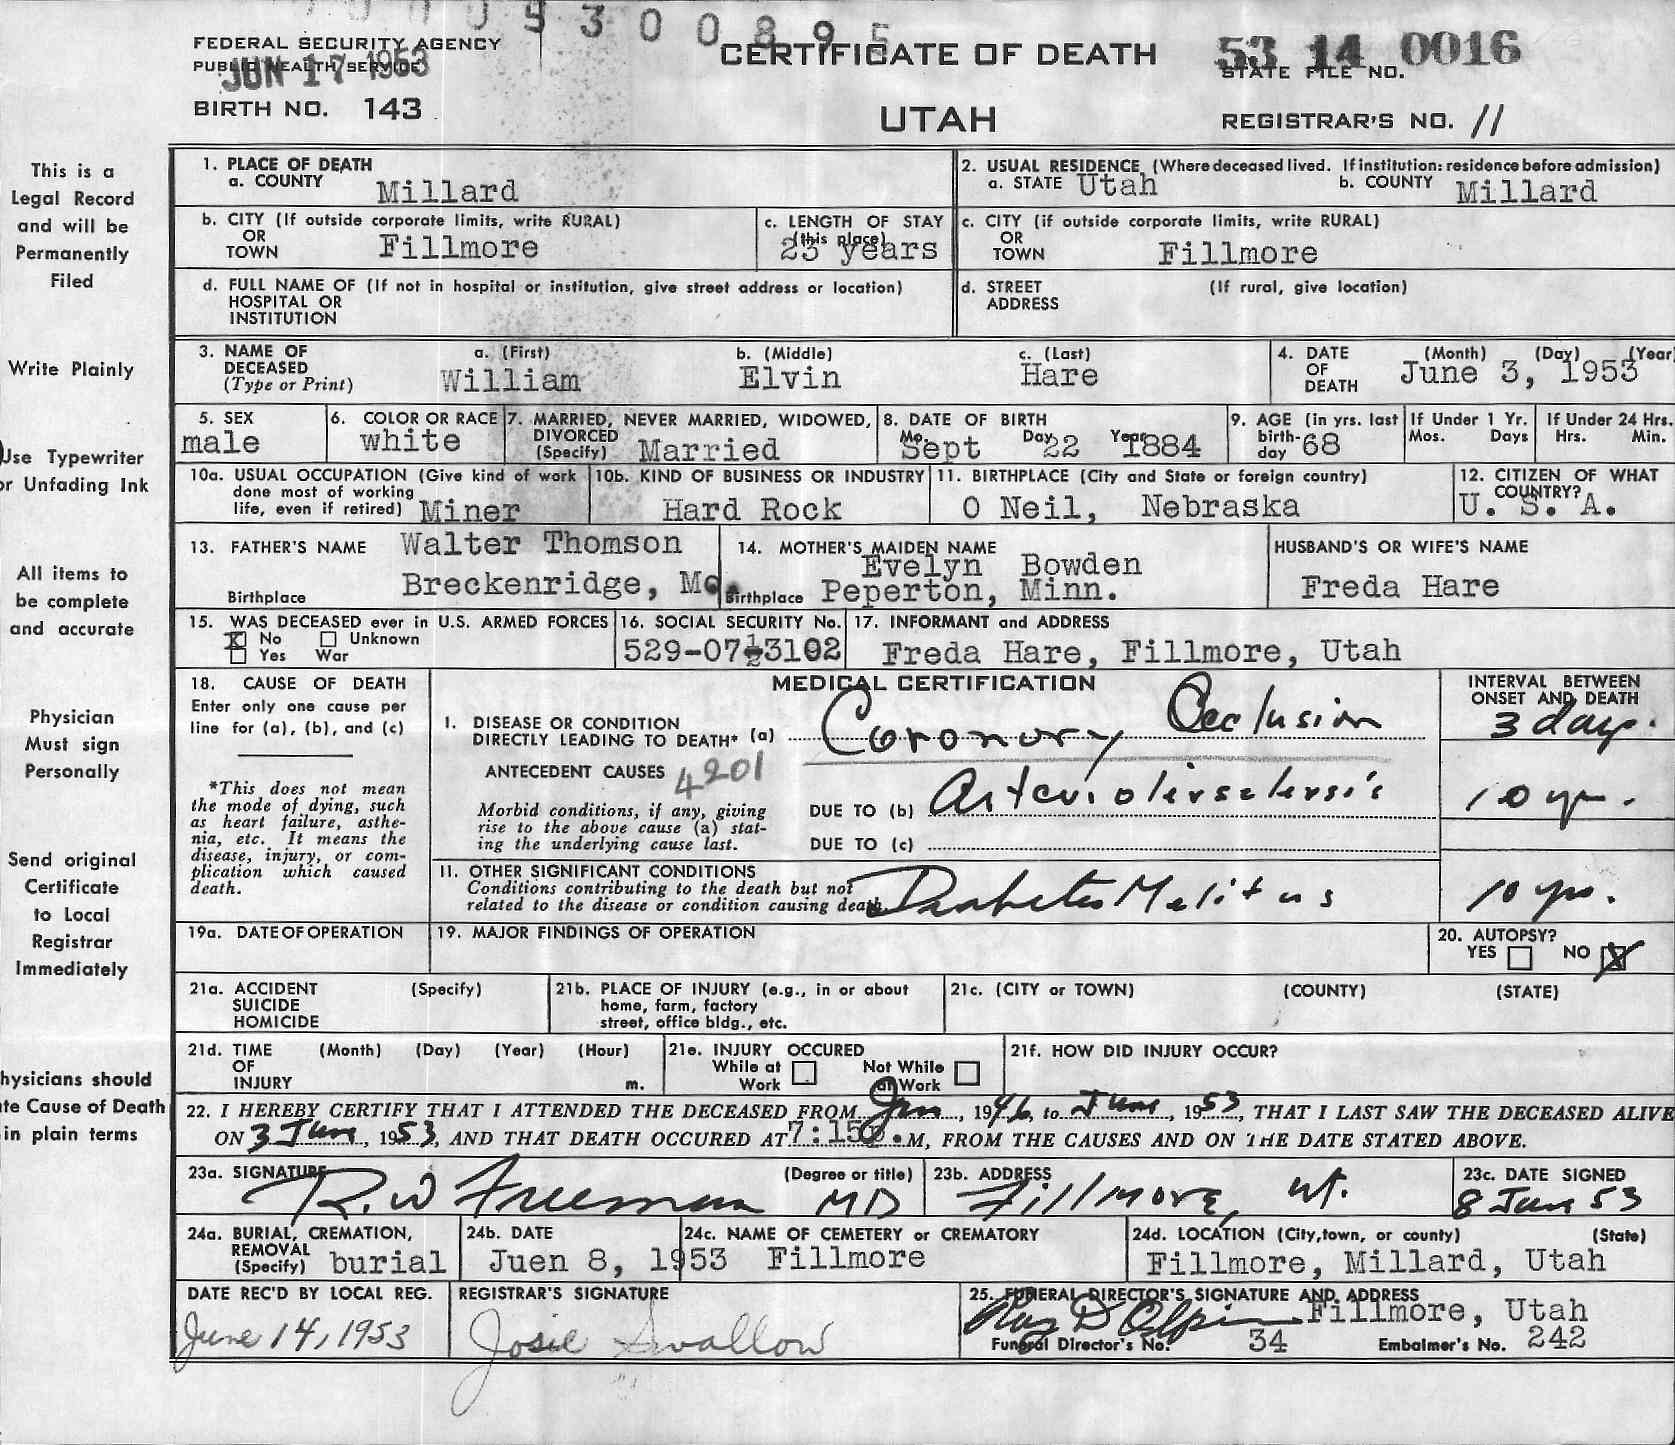 5300895
FEDERAL SECURITY AGENCY
PUBLIC HEALTH SERVICE
JUN 17 1953
CERTIFICATE OF DEATH
53 14 0016
STATE FILE NO.
BIRTH NO. 143
UTAH
REGISTRAR'S NO. 11
This is a
Legal Record
and will be
Permanently
Filed
Write Plainly
Use Typewriter
or Unfading Ink
All items to
be complete
and accurate
Physician
Must sign
Personally
Send original
Certificate
to Local
Registrar
Immediately
hysicians should
te Cause of Death
in plain terms
1. PLACE OF DEATH
a. COUNTY Millard
2. USUAL RESIDENCE (Where deceased lived. If institution: residence before admission)
a. STATE Utah b. COUNTY Millard
b. CITY (If outside corporate limits, write RURAL)
OR
TOWN Fillmore
c. LENGTH OF STAY
(this place)
23 years
c. CITY (if outside corporate limits, write RURAL)
OR
TOWN Fillmore
d. FULL NAME OF (If not in hospital or institution, give street address or location)
HOSPITAL OR
INSTITUTION
d. STREET (If rural, give location)
ADDRESS
3. NAME OF
DECEASED
(Type or Print)
a. (First) b. (Middle) c. (Last)
William Elvin Hare
4. DATE (Month) (Day) (Year)
OF
DEATH June 3, 1953
5. SEX
male
6. COLOR OR RACE
white
7. MARRIED, NEVER MARRIED, WIDOWED,
DIVORCED
(Specify) Married
8. DATE OF BIRTH
Mo. Day Year
Sept 22 1884
9. AGE (in yrs. last
birth-
day 68
If Under 1 Yr.
Mos. Days
If Under 24 Hrs.
Hrs. Min.
10a. USUAL OCCUPATION (Give kind of work
done most of working
life, even if retired) Miner
10b. KIND OF BUSINESS OR INDUSTRY
Hard Rock
11. BIRTHPLACE (City and State or foreign country)
O Neil, Nebraska
12. CITIZEN OF WHAT
COUNTRY?
U. S. A.
13. FATHER'S NAME Walter Thomson
Birthplace Breckenridge, Mo.
14. MOTHER'S MAIDEN NAME
Evelyn Bowden
Birthplace Peperton, Minn.
HUSBAND'S OR WIFE'S NAME
Freda Hare
15. WAS DECEASED ever in U.S. ARMED FORCES
X No Unknown
Yes War
16. SOCIAL SECURITY No.
529-07-3102
17. INFORMANT and ADDRESS
Freda Hare, Fillmore, Utah
18. CAUSE OF DEATH
Enter only one cause per
line for (a), (b), and (c)
*This does not mean
the mode of dying, such
as heart failure, asthe-
nia, etc. It means the
disease, injury, or com-
plication which caused
death.
MEDICAL CERTIFICATION
INTERVAL BETWEEN
ONSET AND DEATH
I. DISEASE OR CONDITION
DIRECTLY LEADING TO DEATH* (a) Coronary Occlusion 3 days.
ANTECEDENT CAUSES 4201
Morbid conditions, if any, giving
rise to the above cause (a) stat-
ing the underlying cause last.
DUE TO (b) Arteriolersclersis 10 yr.
DUE TO (c)
II. OTHER SIGNIFICANT CONDITIONS
Conditions contributing to the death but not
related to the disease or condition causing death
Diabetes Melitus 10 yrs.
19a. DATE OF OPERATION
19. MAJOR FINDINGS OF OPERATION
20. AUTOPSY?
YES NO X
21a. ACCIDENT (Specify)
SUICIDE
HOMICIDE
21b. PLACE OF INJURY (e.g., in or about
home, farm, factory
street, office bldg., etc.
21c. (CITY or TOWN) (COUNTY) (STATE)
21d. TIME (Month) (Day) (Year) (Hour)
OF
INJURY m.
21e. INJURY OCCURED
While at Not While
Work at Work
21f. HOW DID INJURY OCCUR?
22. I HEREBY CERTIFY THAT I ATTENDED THE DECEASED FROM Jan, 1946, to June, 1953, THAT I LAST SAW THE DECEASED ALIVE
ON 3 June, 1953, AND THAT DEATH OCCURED AT 7:15 p.M, FROM THE CAUSES AND ON THE DATE STATED ABOVE.
23a. SIGNATURE (Degree or title)
R.W Freeman MD
23b. ADDRESS
Fillmore, Ut.
23c. DATE SIGNED
8 Jun 53
24a. BURIAL, CREMATION,
REMOVAL
(Specify) burial
24b. DATE
Juen 8, 1953
24c. NAME OF CEMETERY or CREMATORY
Fillmore
24d. LOCATION (City,town, or county) (State)
Fillmore, Millard, Utah
DATE REC'D BY LOCAL REG.
June 14, 1953
REGISTRAR'S SIGNATURE
Josie Swallow
25. FUNERAL DIRECTOR'S SIGNATURE AND ADDRESS
Ray D Olpin Fillmore, Utah
Funeral Director's No. 34 Embalmer's No. 242